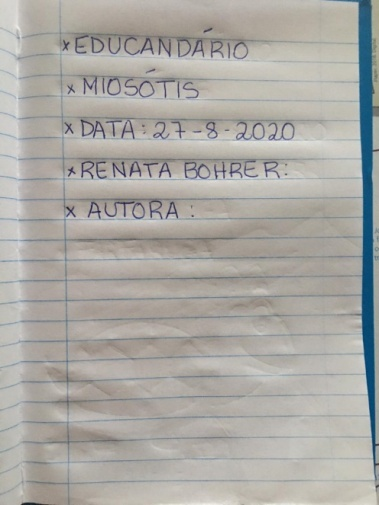 x EDUCANDÁRIO
x MIOSÓTIS
x DATA: 27-8-2020
x RENATA BOHRER:
x AUTORA :